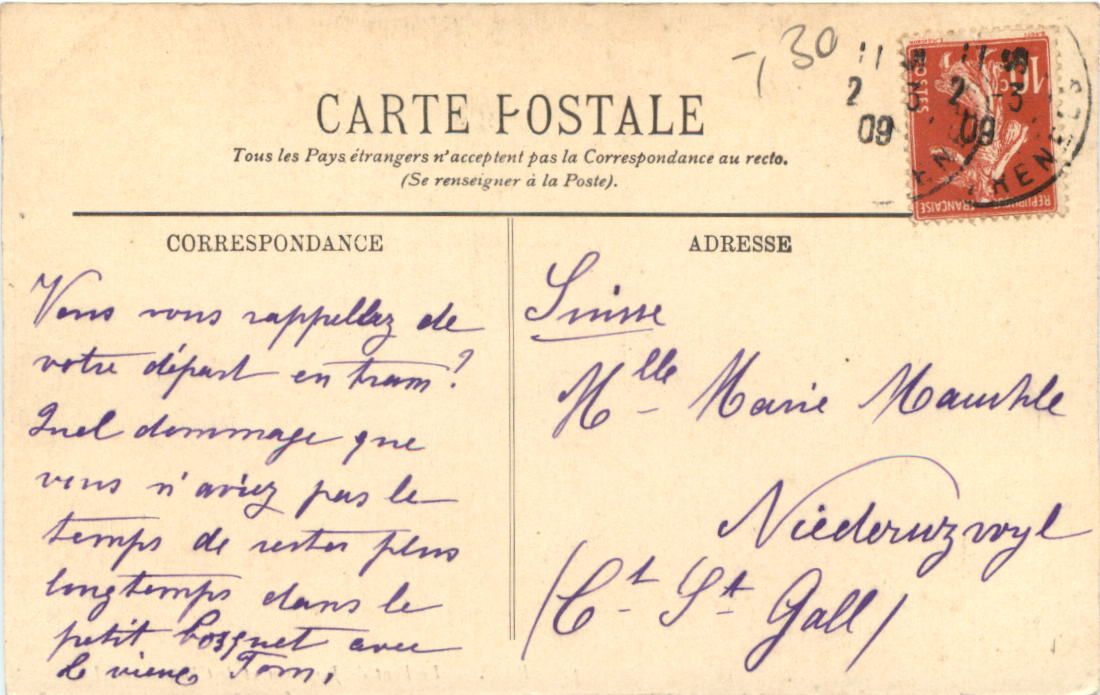 7,30
11 S
2 -3
09
11 S
2 -3
09
RENNES
POSTES
10 C
REPUBLIQUE FRANÇAISE
CARTE POSTALE
Tous les Pays étrangers n'acceptent pas la Correspondance au recto.
(Se renseigner à la Poste).
CORRESPONDANCE
Vous vous rappellez de
votre départ en tram?
Quel dommage que
vous n'aviez pas le
temps de rester plus
longtemps dans le
petit bosquet avec
le vieux Tom.
ADRESSE
Suisse
Mlle Marie
Niederuzwyl
(Ct St Gall)